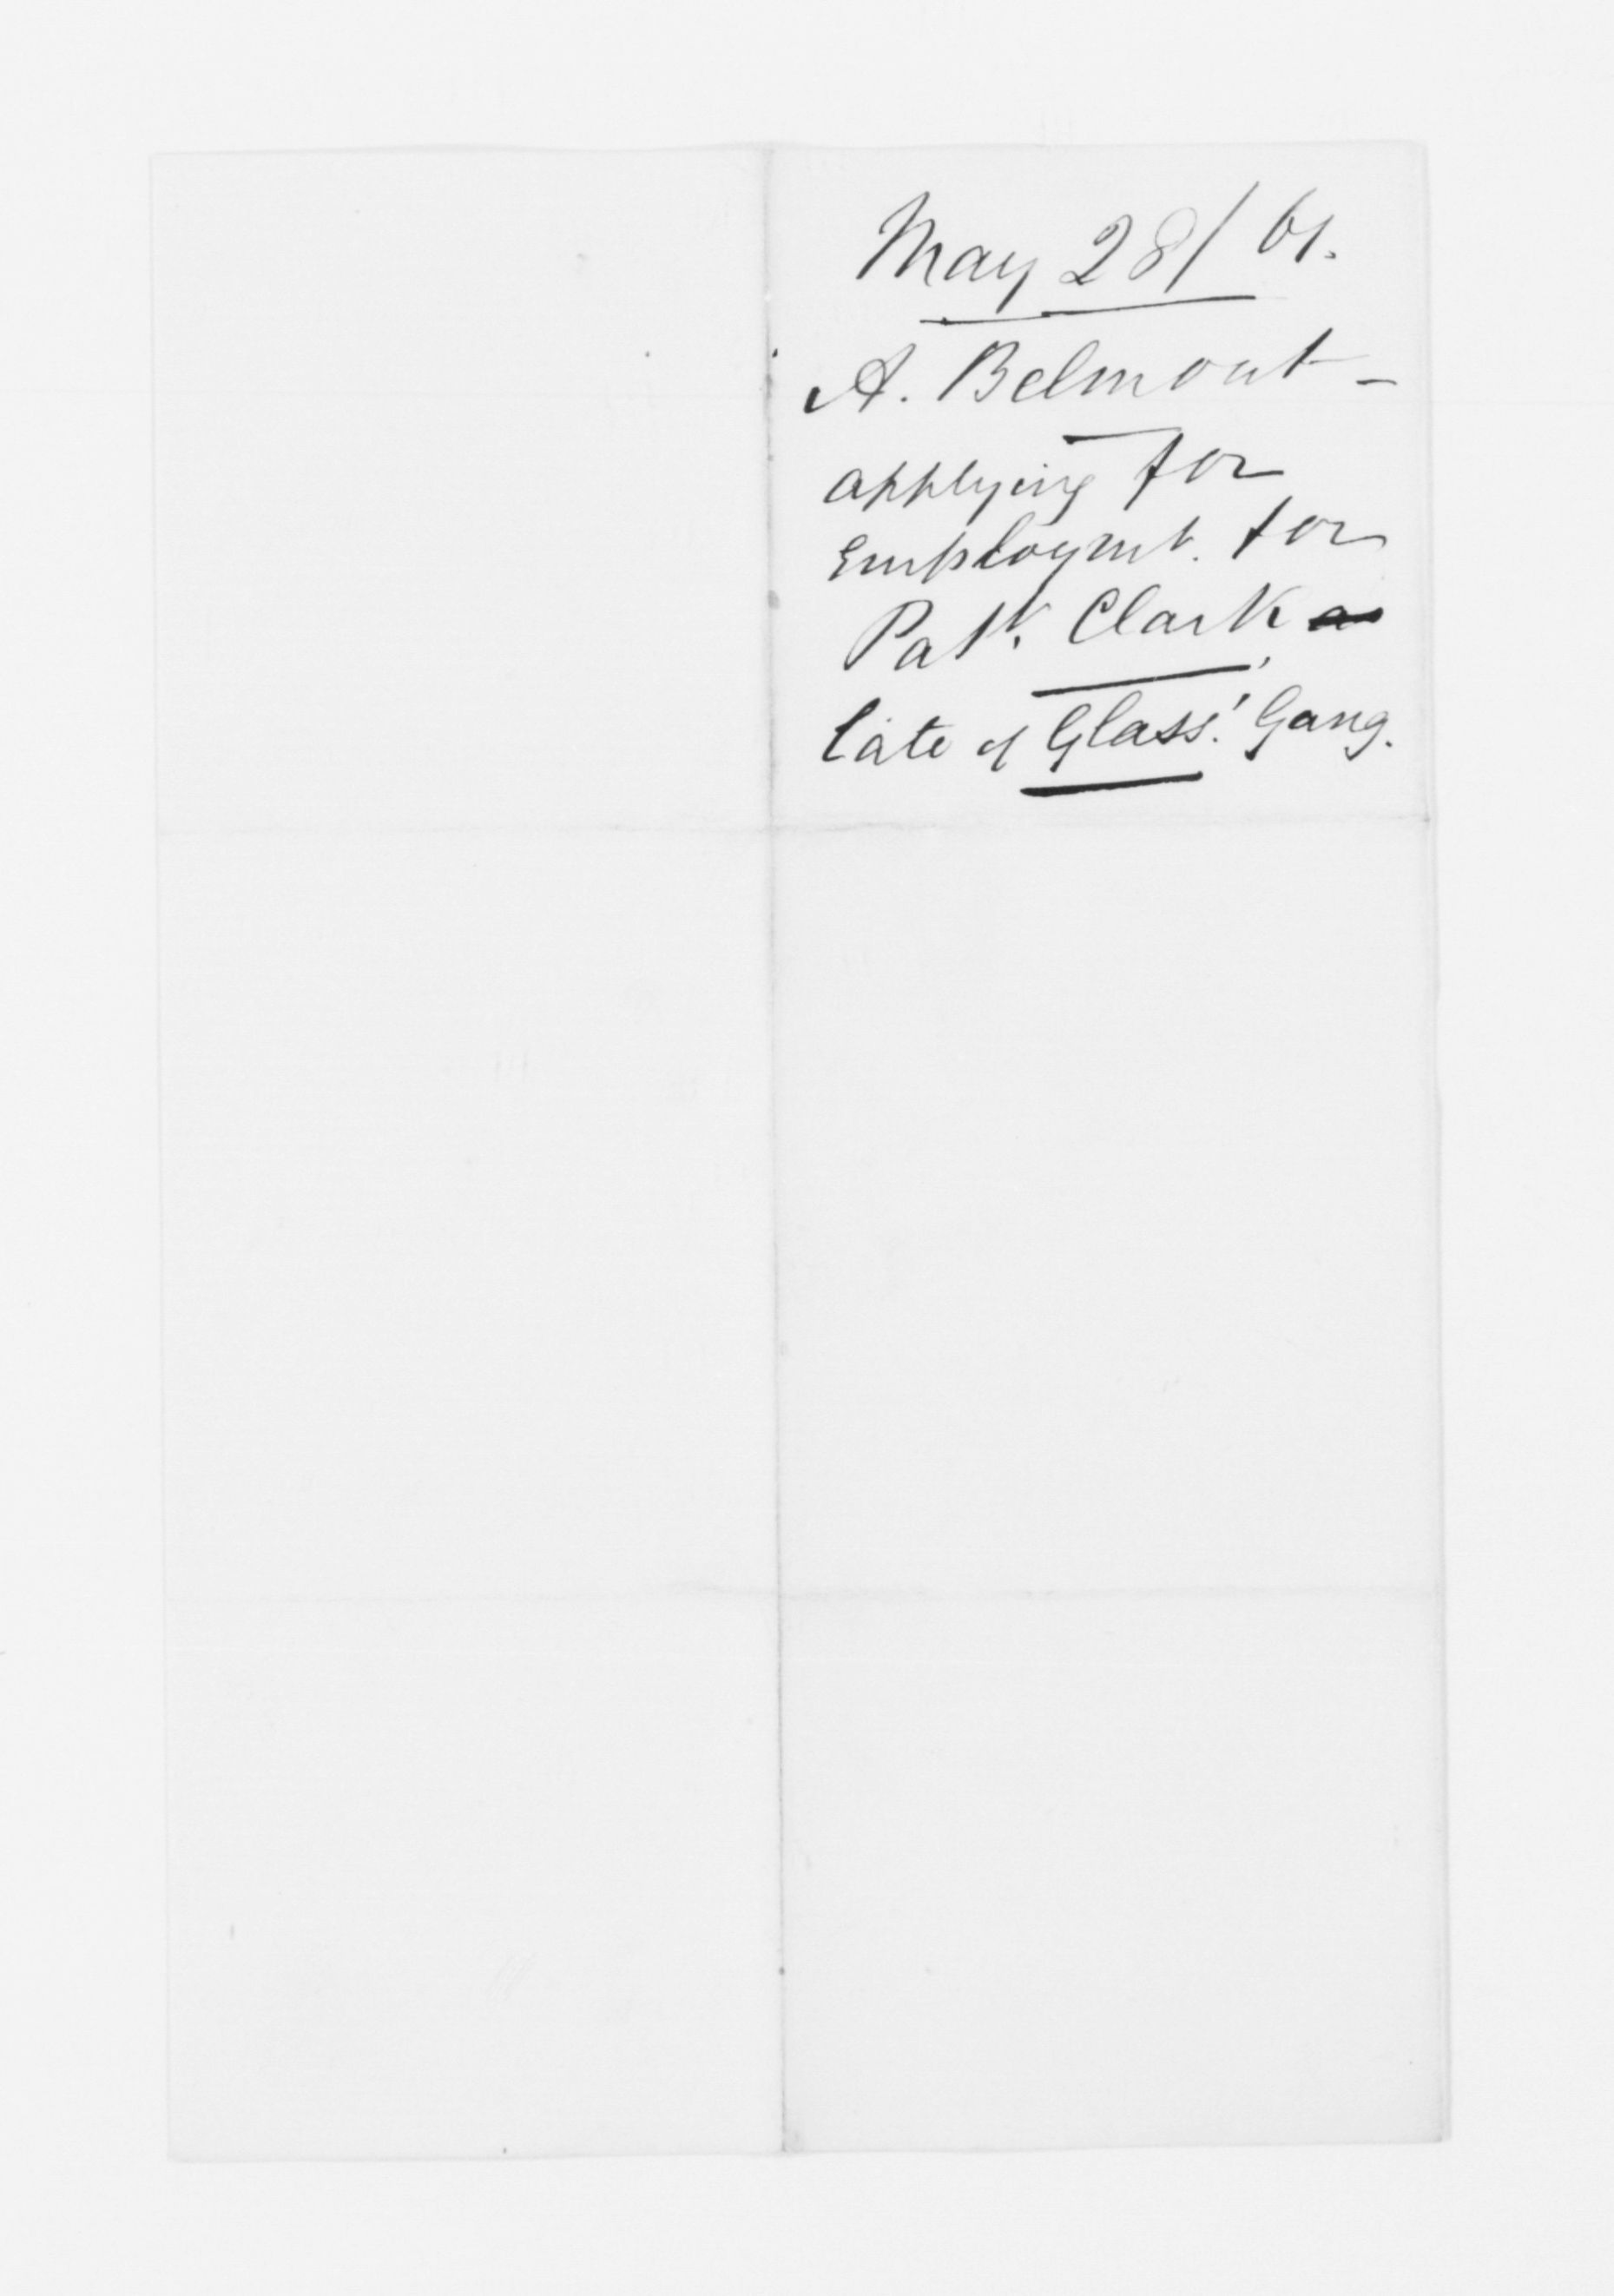 May 28/61.
A. Belmont –
applying for
Employmt. for
Patk. Clark,
late of Glass' Gang.